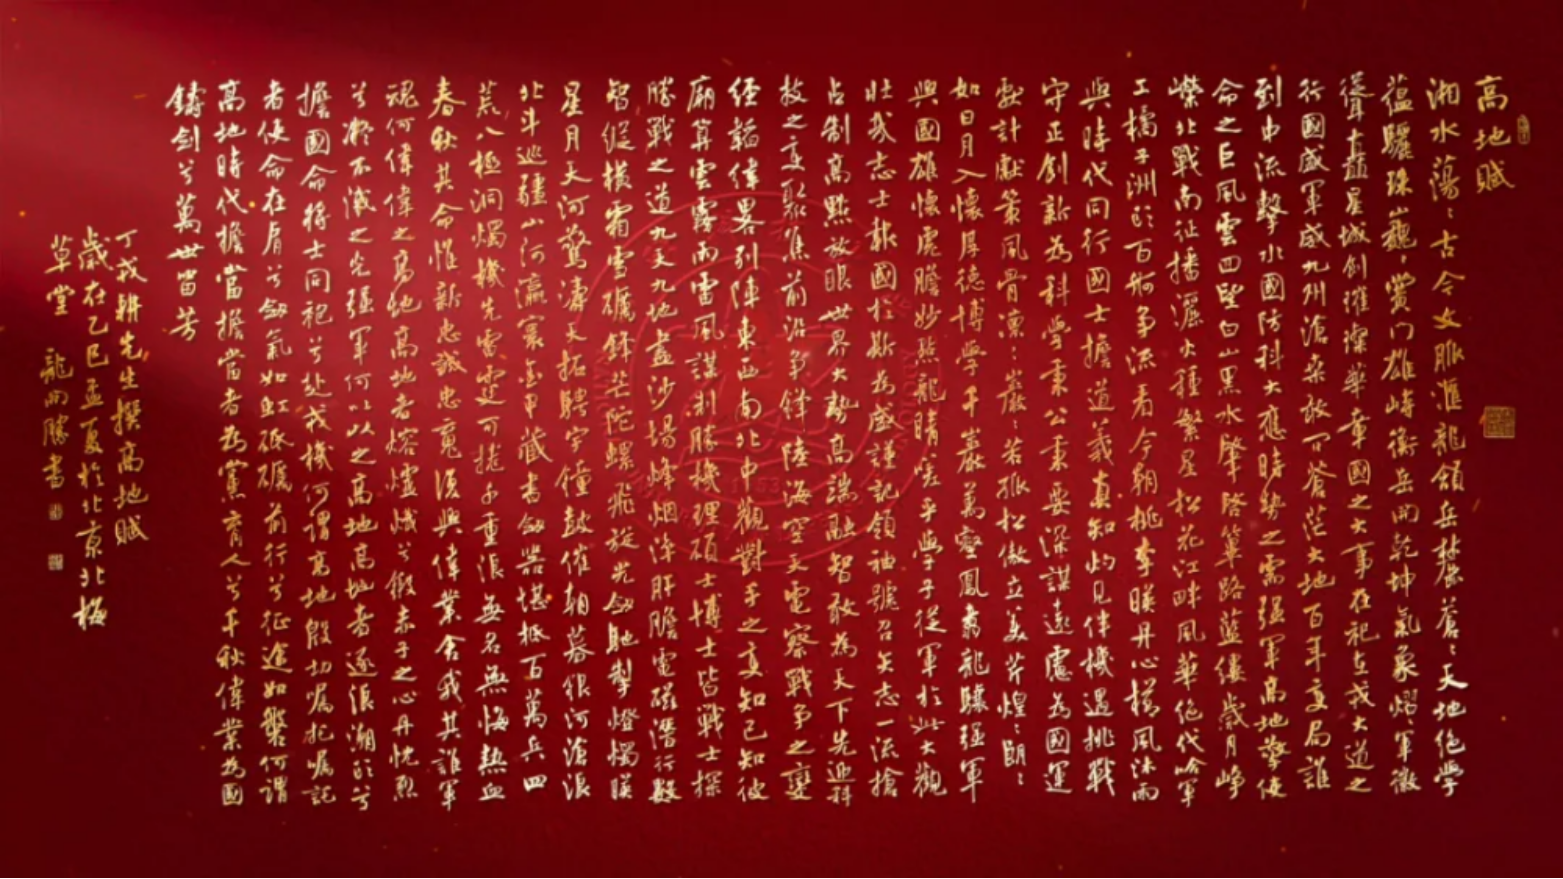 高地賦
湘水蕩蕩古今文脈滙龍領岳麓蒼蒼天地絶學
蘊驪珠巍巍黌门雄峙衡岳而乾坤氣象熠熠軍徽
聳矗星城創璀璨華章國之大事在祀与戎大道之
行國盛軍威九州滄桑放不蒼茫大地百年变局誰
到中流擊水國防科大應時勢之需强軍高地擎使
命之巨風雲四望白山黑水肇啓篳路藍縷歲月崢
嶸北戰南征播灑火種繁星松花江畔風華絶代哈軍
工橘子洲头百舸争流看今朝桃李暎丹心櫛風沐雨
與時代同行國士擔道義真知灼見伴機遇挑戰
守正創新为科學秉公秉要深謀遠慮为國運
獻計獻策風骨凛凛巖巖若孤松傲立美芹煌煌朗朗
如日月入懷厚德博學千巖萬壑鳳翥龍驤强軍
與國雄懷虎膽妙点龍睛嗟乎學子從軍於此大觀
壯哉志士報國於斯为盛謹記領袖號召矢志一流搶
占制高點放眼世界大勢高端融智敢为天下先迎科
技之变聚焦前沿争鋒陸海空天電察戰争之變
經韜偉畧列陣東西南北中觀對手之变知己知彼
廟算雲霧雨雷風謀制勝機理碩士博士皆戰士探
勝戰之道九天九地盡沙場烽烟淬肝膽電磁潛行數
智縱横霜雪礪鋒芒陀螺飛旋光劍馳掣燈燭暎
星月天河驚濤天拓騁宇鐘鼓催朝暮銀河滄浪
北斗巡疆山河瀛寰金甲藏書劍器堪抵百萬兵四
荒八極洞燭機先雷霆可挽千重浪無名無悔熱血
春秋其命惟新忠誠忠魂復興偉業舍我其誰軍
魂何偉偉之高地高地者熔爐熾兮假赤子之心丹忱烈
兮燃不滅之光强軍何以以之高地高地者逐浪潮头兮
擔國命將士同袍兮赴戎機何謂高地殷切囑托囑託
者使命在肩兮劍氣如虹砥礪前行兮征途如磐何謂
高地時代擔當擔當者为黨育人兮千秋偉業为國
鑄劍兮萬世留芳
丁戎耕先生撰高地賦
歲在乙巳孟夏於北京北梅
草堂 龍兩勝書